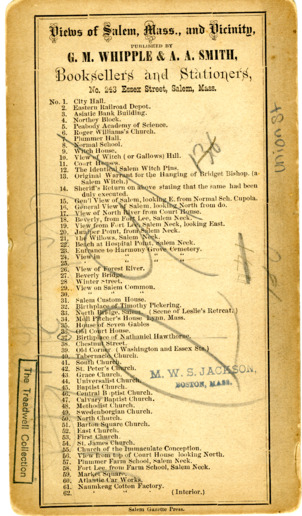 Views of Salem, Mass., and Vicinity,
PUBLISHED BY
G. M. WHIPPLE & A. A. SMITH,
Booksellers and Stationers,
No. 243 Essex Street, Salem, Mass.
No. 1. City Hall.
2. Eastern Railroad Depot.
3. Asiatic Bank Building.
4. Northey Block.
5. Peabody Academy of Science.
6. Roger Williams's Church.
7. Plummer Hall.
8. Normal School.
9. Witch House.
10. View of Witch (or Gallows) Hill.
11. Court Houses.
12. The Identical Salem Witch Pins.
13. Original Warrant for the Hanging of Bridget Bishop. (a Salem Witch.)
14. Sheriff's Return on above stating that the same had been duly executed.
15. Gen'l View of Salem, looking E. from Normal Sch. Cupola.
16. General View of Salem, looking North from do.
17. View of North River from Court House.
18. Beverly, from Fort Lee, Salem Neck.
19. View from Fort Lee, Salem Neck, looking East.
20. Juniper Point, from Salem Neck.
21. The Willows, Salem Neck.
22. Beach at Hospital Point, Salem Neck.
23. Entrance to Harmony Grove Cemetery.
24. View in " " "
25. " " "
26. View of Forest River.
27. Beverly Bridge.
28. Winter Street.
29. View on Salem Common.
30. " " "
31. Salem Custom House.
32. Birthplace of Timothy Pickering.
33. North Bridge, Salem. (Scene of Leslie's Retreat.)
34. Moll Pitcher's House Lynn, Mass.
35. House of Seven Gables
36. Old Court House.
37. Birthplace of Nathaniel Hawthorne.
38. Chestnut Street.
39. Old Corner. (Washington and Essex Sts.)
40. Tabernacle Church.
41. South Church.
42. St. Peter's Church.
43. Grace Church.
44. Universalist Church.
45. Baptist Church.
46. Central Baptist Church.
47. Calvary Baptist Church.
48. Methodist Church.
49. Swedenborgian Church.
50. North Church.
51. Barton Square Church.
52. East Church.
53. First Church.
54. St. James Church.
55. Church of the Immaculate Conception.
56. View from top of Court House looking North.
57. Plummer Farm School, Salem Neck.
58. Fort Lee, from Farm School, Salem Neck.
59. Market Square.
60. Atlantic Car Works.
61. Naumkeag Cotton Factory.
62. " " " (Interior.)
Salem Gazette Press.
M. W. S. JACKSON,
BOSTON, MASS.
The Treadwell Collection